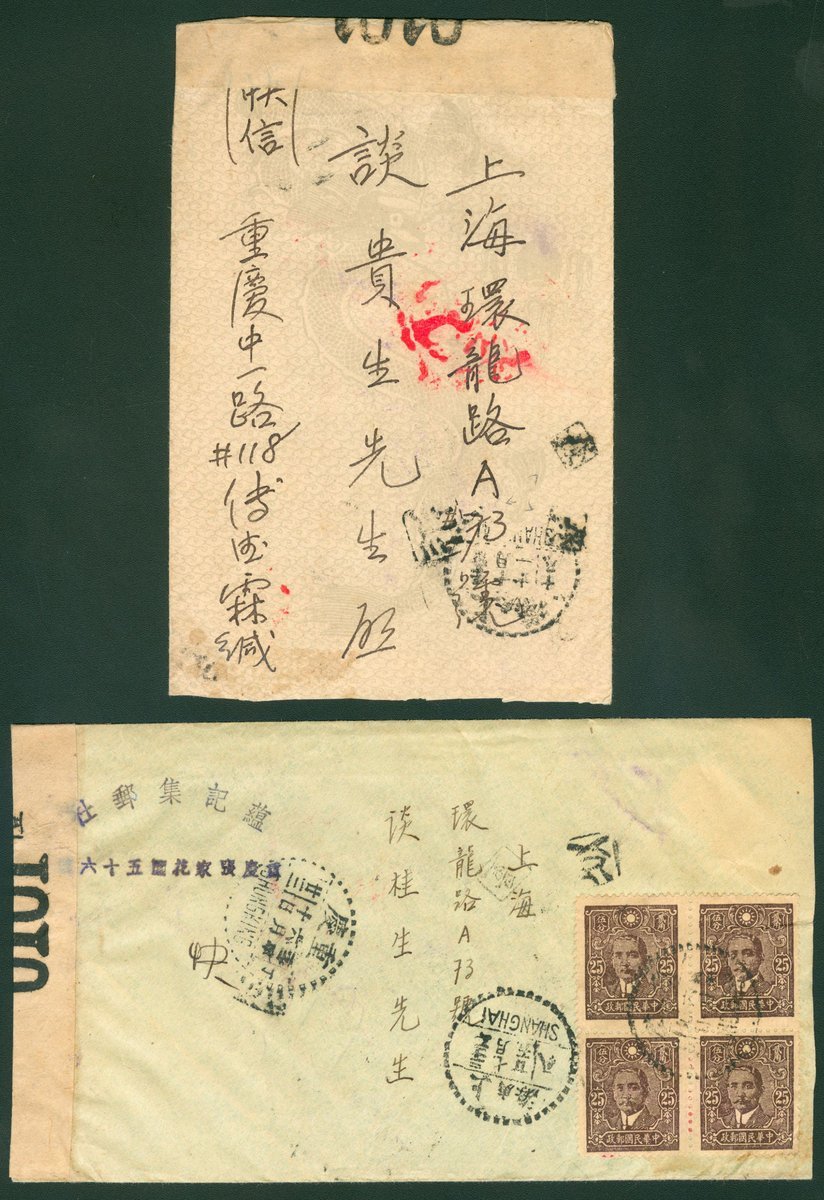 1010
上海環龍路A73號
談貴生先生啟
快信
重慶中一路
#118
霖緘
1010
蘊記集郵社
重慶張家花園五十六號
上海
環龍路A73號
談桂生先生
快
重慶
CHUNGKING
上海
SHANGHAI
25 25
中華民國郵政
25 25
中華民國郵政
25 25
中華民國郵政
25 25
中華民國郵政